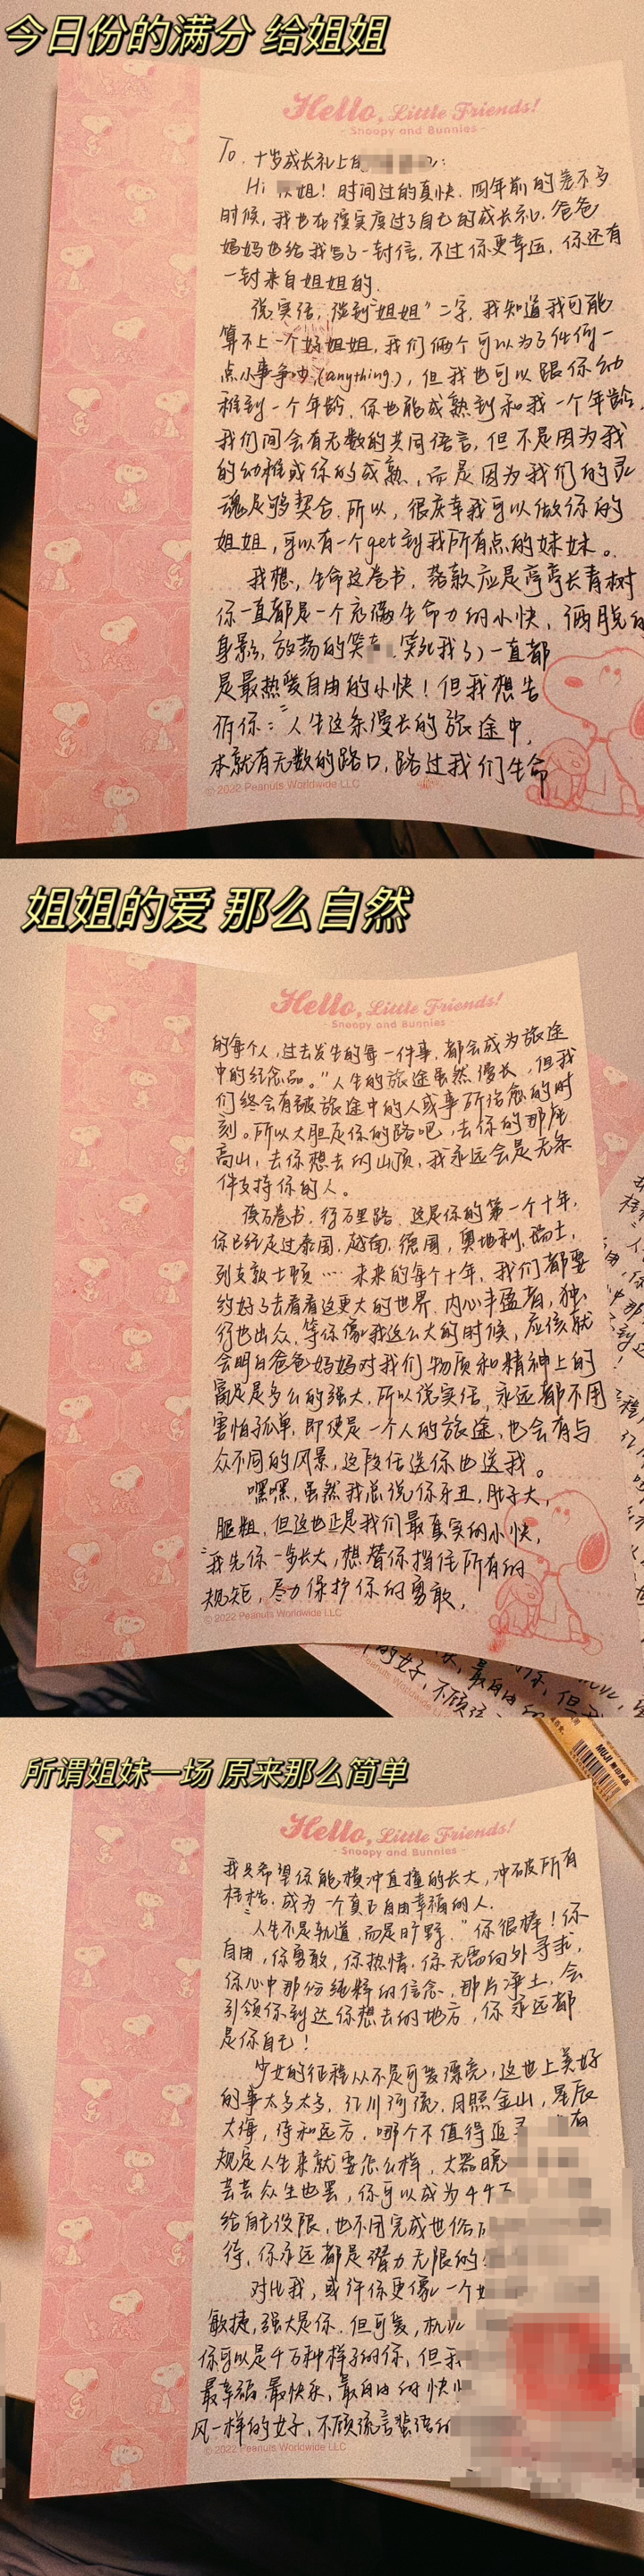 今日份的满分 给姐姐
Hello, Little Friends!
- Snoopy and Bunnies -
To. 十岁成长礼上的
Hi 姐! 时间过的真快. 四年前的差不多
时候, 我也在读实度过了自己的成长礼. 爸爸
妈妈也给我写了一封信, 不过你更幸运, 你还有
一封来自姐姐的.
说实话, 谈到"姐姐"二字, 我知道我可能
算不上一个好姐姐, 我们俩个可以为了任何一
点小事争吵 (anything), 但我也可以跟你幼
稚到一个年龄, 你也能成熟到和我一个年龄.
我们间会有无数的共同语言, 但不是因为我
的幼稚或你的成熟, 而是因为我们的灵
魂足够契合. 所以, 很庆幸我可以做你的
姐姐, 可以有一个get到我所有点的妹妹。
我想, 生命这卷书, 落款应是弯弯长青树
你一直都是一个充满生命力的小快, 洒脱的
身影, 放荡的笑 笑死我了) 一直都
是最热爱自由的小快! 但我想告
诉你: "人生这条漫长的旅途中,
本就有无数的路口, 路过我们生命
© 2022 Peanuts Worldwide LLC
姐姐的爱 那么自然
Hello, Little Friends!
- Snoopy and Bunnies -
的每个人, 过去发生的每一件事, 都会成为旅途
中的纪念品。"人生的旅途虽然漫长, 但我
们终会有被旅途中的人或事所治愈的时
刻。所以大胆走你的路吧, 去你的那座
高山, 去你想去的山顶, 我永远会是无条
件支持你的人。
读万卷书, 行万里路. 这是你的第一个十年,
你已经走过泰国, 越南, 德国, 奥地利, 瑞士,
列支敦士顿 … 未来的每个十年, 我们都要
约好了去看看这更大的世界. 内心丰盈者, 独
行也出众. 等你像我这么大的时候, 应该就
会明白爸爸妈妈对我们物质和精神上的
富足是多么的强大. 所以说实话, 永远都不用
害怕孤单, 即使是一个人的旅途, 也会有与
众不同的风景, 这段任送你也送我。
嘿嘿, 虽然我总说你牙丑, 肚子大,
腿粗, 但这也正是我们最真实的小快,
"我先你一步长大, 想替你挡住所有的
规矩, 尽力保护你的勇敢,
© 2022 Peanuts Worldwide LLC
MUJI 無印良品
所谓姐妹一场 原来那么简单
Hello, Little Friends!
- Snoopy and Bunnies -
我只希望你能横冲直撞的长大, 冲破所有
桎梏. 成为一个真正自由幸福的人.
"人生不是轨道, 而是旷野. "你很棒! 你
自由, 你勇敢, 你热情. 你无需向外寻求,
你心中那份纯粹的信念, 那片净土, 会
引领你到达你想去的地方, 你永远都
是你自己!
少女的征程从不是可爱漂亮, 这世上美好
的事太多太多. 江川河流, 日照金山, 星辰
大海, 诗和远方, 哪个不值得追 有
规定人生来就要怎么样, 大器晚
芸芸众生也罢, 你可以成为千千万
给自己设限, 也不用完成世俗
待, 你永远都是潜力无限的
对比我, 或许你更像一个
敏捷, 强大是你. 但可爱, 机
你可以是千万种样子的你, 但
最幸福, 最快乐, 最自由的快
风一样的女子, 不顾流言蜚语的
© 2022 Peanuts Worldwide LLC